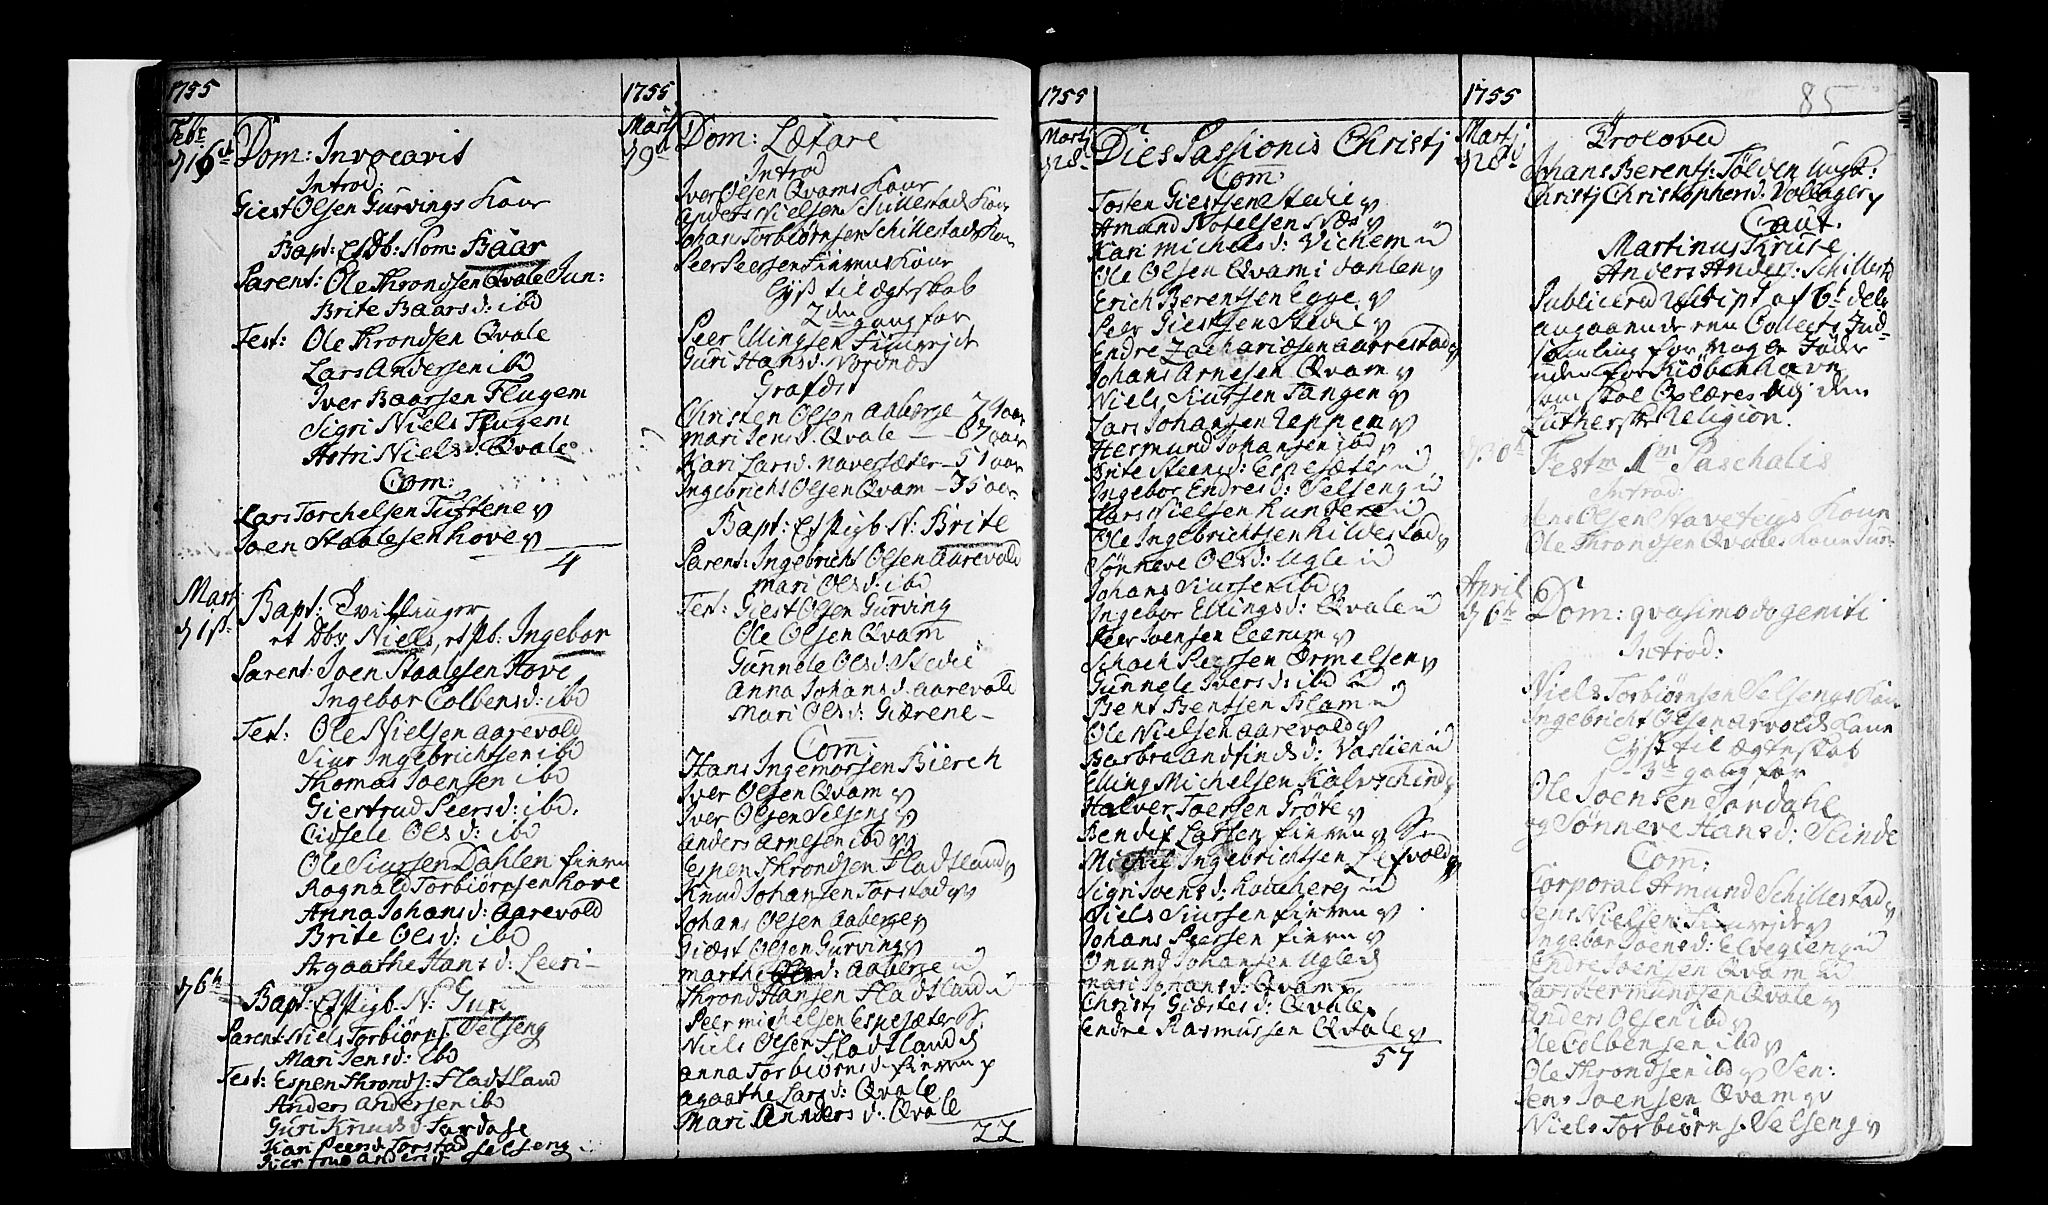 1755
Febr
d 16d
Dom: Invocavit
Introd.
Giest Olsen Gurvings Kone
Bapt: Es Db: Nom: Baar
Parent: Ole Throndsen Qvale Jun:
Brite Baars d: ibd
Test: Ole Throndsen Qvale
Lars Andersen ibd
Iver Baarsen Flugem
Sigri Niels Flugem
Astri Niels d: Qvale
Com:
Lars Torchelsen Tuftene
Joen Staalesen Hove
4
Mart
d 1st
Bapt: Tvillinger
et Dbr Niels, et pb: Ingebor
Parent: Joen Staalesen Hove
Ingebor Colbens d: ibd
Test: Ole Nielsen Aarevold
Siur Ingebrichtsen ibd
Thomas Joensen ibd
Giertrud Peers d: ibd.
Cidsele Ols d: ibd
Ole Siursen Dahlen
Ragnald Torbiørnsen Hove
Anna Johans d: Aarevold
Brite Ols d: ibd
Agaathe Hans d: Leeri
d 6h
Bapt: Es Pigb N: Guri
Parent: Niels Torbiørns Selseng
Mari Jens d: ibd
Test: Espen Thronds: Fladtland
Anders Andersen ibd
Guri Knuds d
Kari Peers d Torstad
Selseng
1755
Martj
d 9d
Dom: Lætare
Introd
Iver Olsen Qvams Kone
Anders Nielsen Schillestads Kone
Johans Torbiørnsen Schillestads Kone
Peer Peersen Kone
Lyst til Ægteskab
2den gang for
Peer Ellingsen
Guri Hans d: Norinds
Grafæst
Christen Olsen Aaberge
Mari Jens d: Qvale
Kari Lars d: Naversæter 51 aar
Ingebricht Olsen Qvam
Bapt: Es Pigb N: Brite
Parent: Ingebricht Olsen Aarevold
Mari Ols d: ibd
Test: Giest Olsen Gurving
Ole Olsen Qvam
Gunnele Ols d: Stedie
Anna Johans d: Aarevold
Mari Ols d: Giærene
Com:
Hans Ingemorsen Bierch
Iver Olsen Qvam
Iver Olsen Selseng
Anders Arnesen ibd
Espen Throndsen Fladtland
Knud Johansen Torstad
Johans Olsen Aaberge
Giæst Olsen Gurving
Marthe d: Aaberge
Thrond Hansen Fladtland
Peer Michelsen Espesæter
Niels Olsen Fladtland
Anna Torbiørns d
Agaathe Lars d: Qvale
Mari Anders d: Qvale
22
1755
Martj
d 28
Dies Passionis Christj
Com:
Tosten Giestsen Stedie
Amund Notelsen Næs
Kari Michels d: Vichem
Ole Olsen Qvam i Dahlen
Erich Berentsen Egge
Peer Giestsen Stedie
Endre Zachariæsen Aarrestad
Johans Arnesen Qvam
Niels Siursen Tangen
Lars Johansen Reppen
Hermund Johansen ibd
Brite Steens d: Espesæter
Ingebor Endres d: Selseng
Lars Nielsen Hundere
Ole Ingebrichtsen Hildestad
Sønneve Ols d: Ugle
Johans Siursen ibd
Ingebor Ellings d: Qvale
Peer Joensen Leerum
Schach Peersen Ormelsen
Gunnele Ivers d: ibd
Bent Bentsen Flam
Ole Nielsen Aarevold
Barbra Andfinds d: Vaslien
Elling Michelsen Kalvschind
Halver Joensen Frøte
Bendix Larsen
Michel Ingebrichtsen
Sigri Joens d: Houcberg
Niels Siursen
Johans Peersen
Onund Johansen Ugle
Mari Johans d: Qvam
Christj Giestes d: Qvale
Endre Rasmussen Qvale
57
1755
85
Martj
d 28
Trolover
Johans Berents: Tølden Ungk:
Christj Christophers d: Vollager
Caut.
Martinus Kruse
Anders Anders: Schillest
Publicered Rescript af
angaaende een Collects Ind-
samling for Nogle Jøder
uden for Kiøbenhavn
som skal Oplæres udj den
Lutherske Religion.
d 30h
Festm 1m Paschalis
Introd:
Jens Olsen Staveteigs Kone
Ole Throndsen Qvales Kone Jun:
April
d 6h
Dom: Qvasimodogeniti
Introd:
Niels Torbiørnsen Selsengs Kone
Ingebricht Olsen Arvolds Kone
Lyst til Ægteskab
3d gang for
Ole Joensen Jordahl
og Sønneve Hans d: Slinde
Com:
Corporal Amund Schillestad
Jens Nielsen
Ingebor Joens d:
Endre Joensen Qvam
Lars Hermundsen Qvale
Anders Olsen ibd
Ole Colbensen ibd
Ole Throndsen ibd Sen:
Jens Joensen Qvam
Niels Torbiørns: Selseng